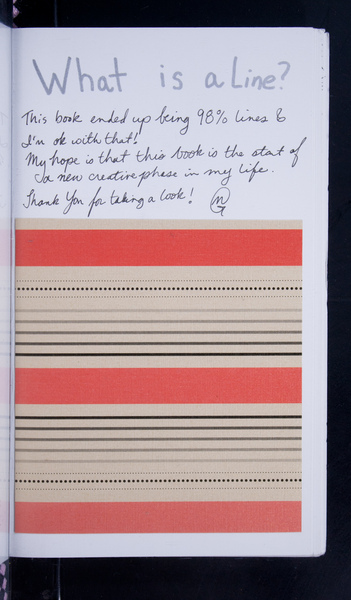 What is a Line?
This book ended up being 98% lines &
I'm ok with that!
My hope is that this book is the start of
a new creative phase in my life.
Thank You for taking a look!